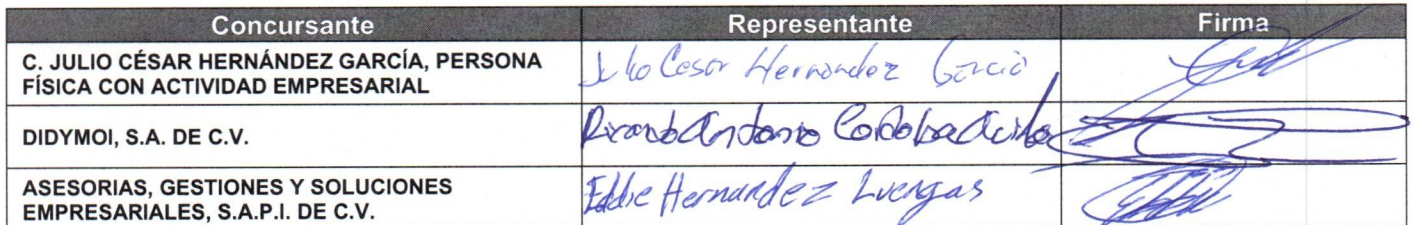 Concursante Representante Firma
C. JULIO CÉSAR HERNÁNDEZ GARCÍA, PERSONA
FÍSICA CON ACTIVIDAD EMPRESARIAL
Julio Cesar Hernandez Garcia
DIDYMOI, S.A. DE C.V.
Antonio Cordoba
ASESORIAS, GESTIONES Y SOLUCIONES
EMPRESARIALES, S.A.P.I. DE C.V.
Eddie Hernandez Luengas